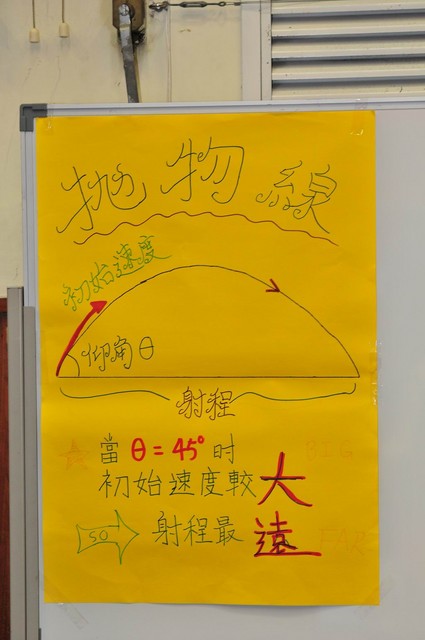 拋物線
初始速度
仰角θ
射程
當θ=45°时
初始速度較大
BIG
SO 射程最遠